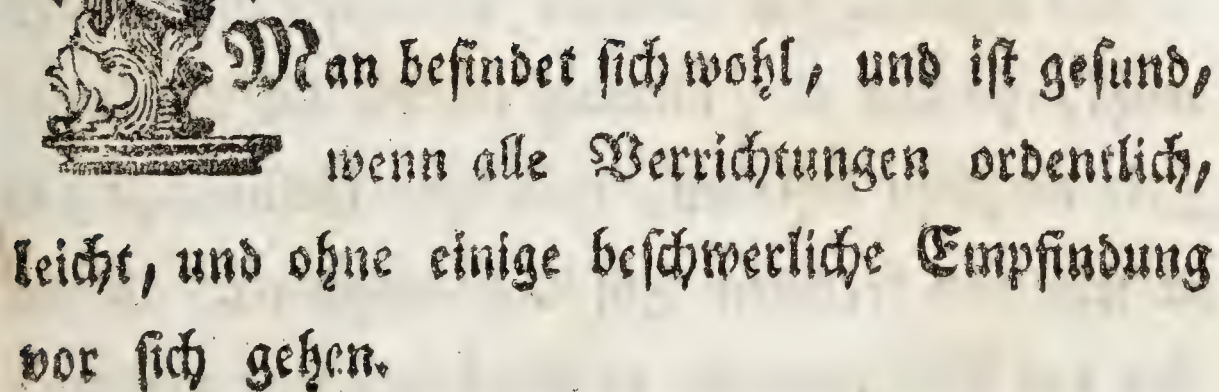 Man befindet sich wohl, und ist gesund,
wenn alle Verrichtungen ordentlich,
leicht, und ohne einige beschwerliche Empfindung
vor sich gehen.